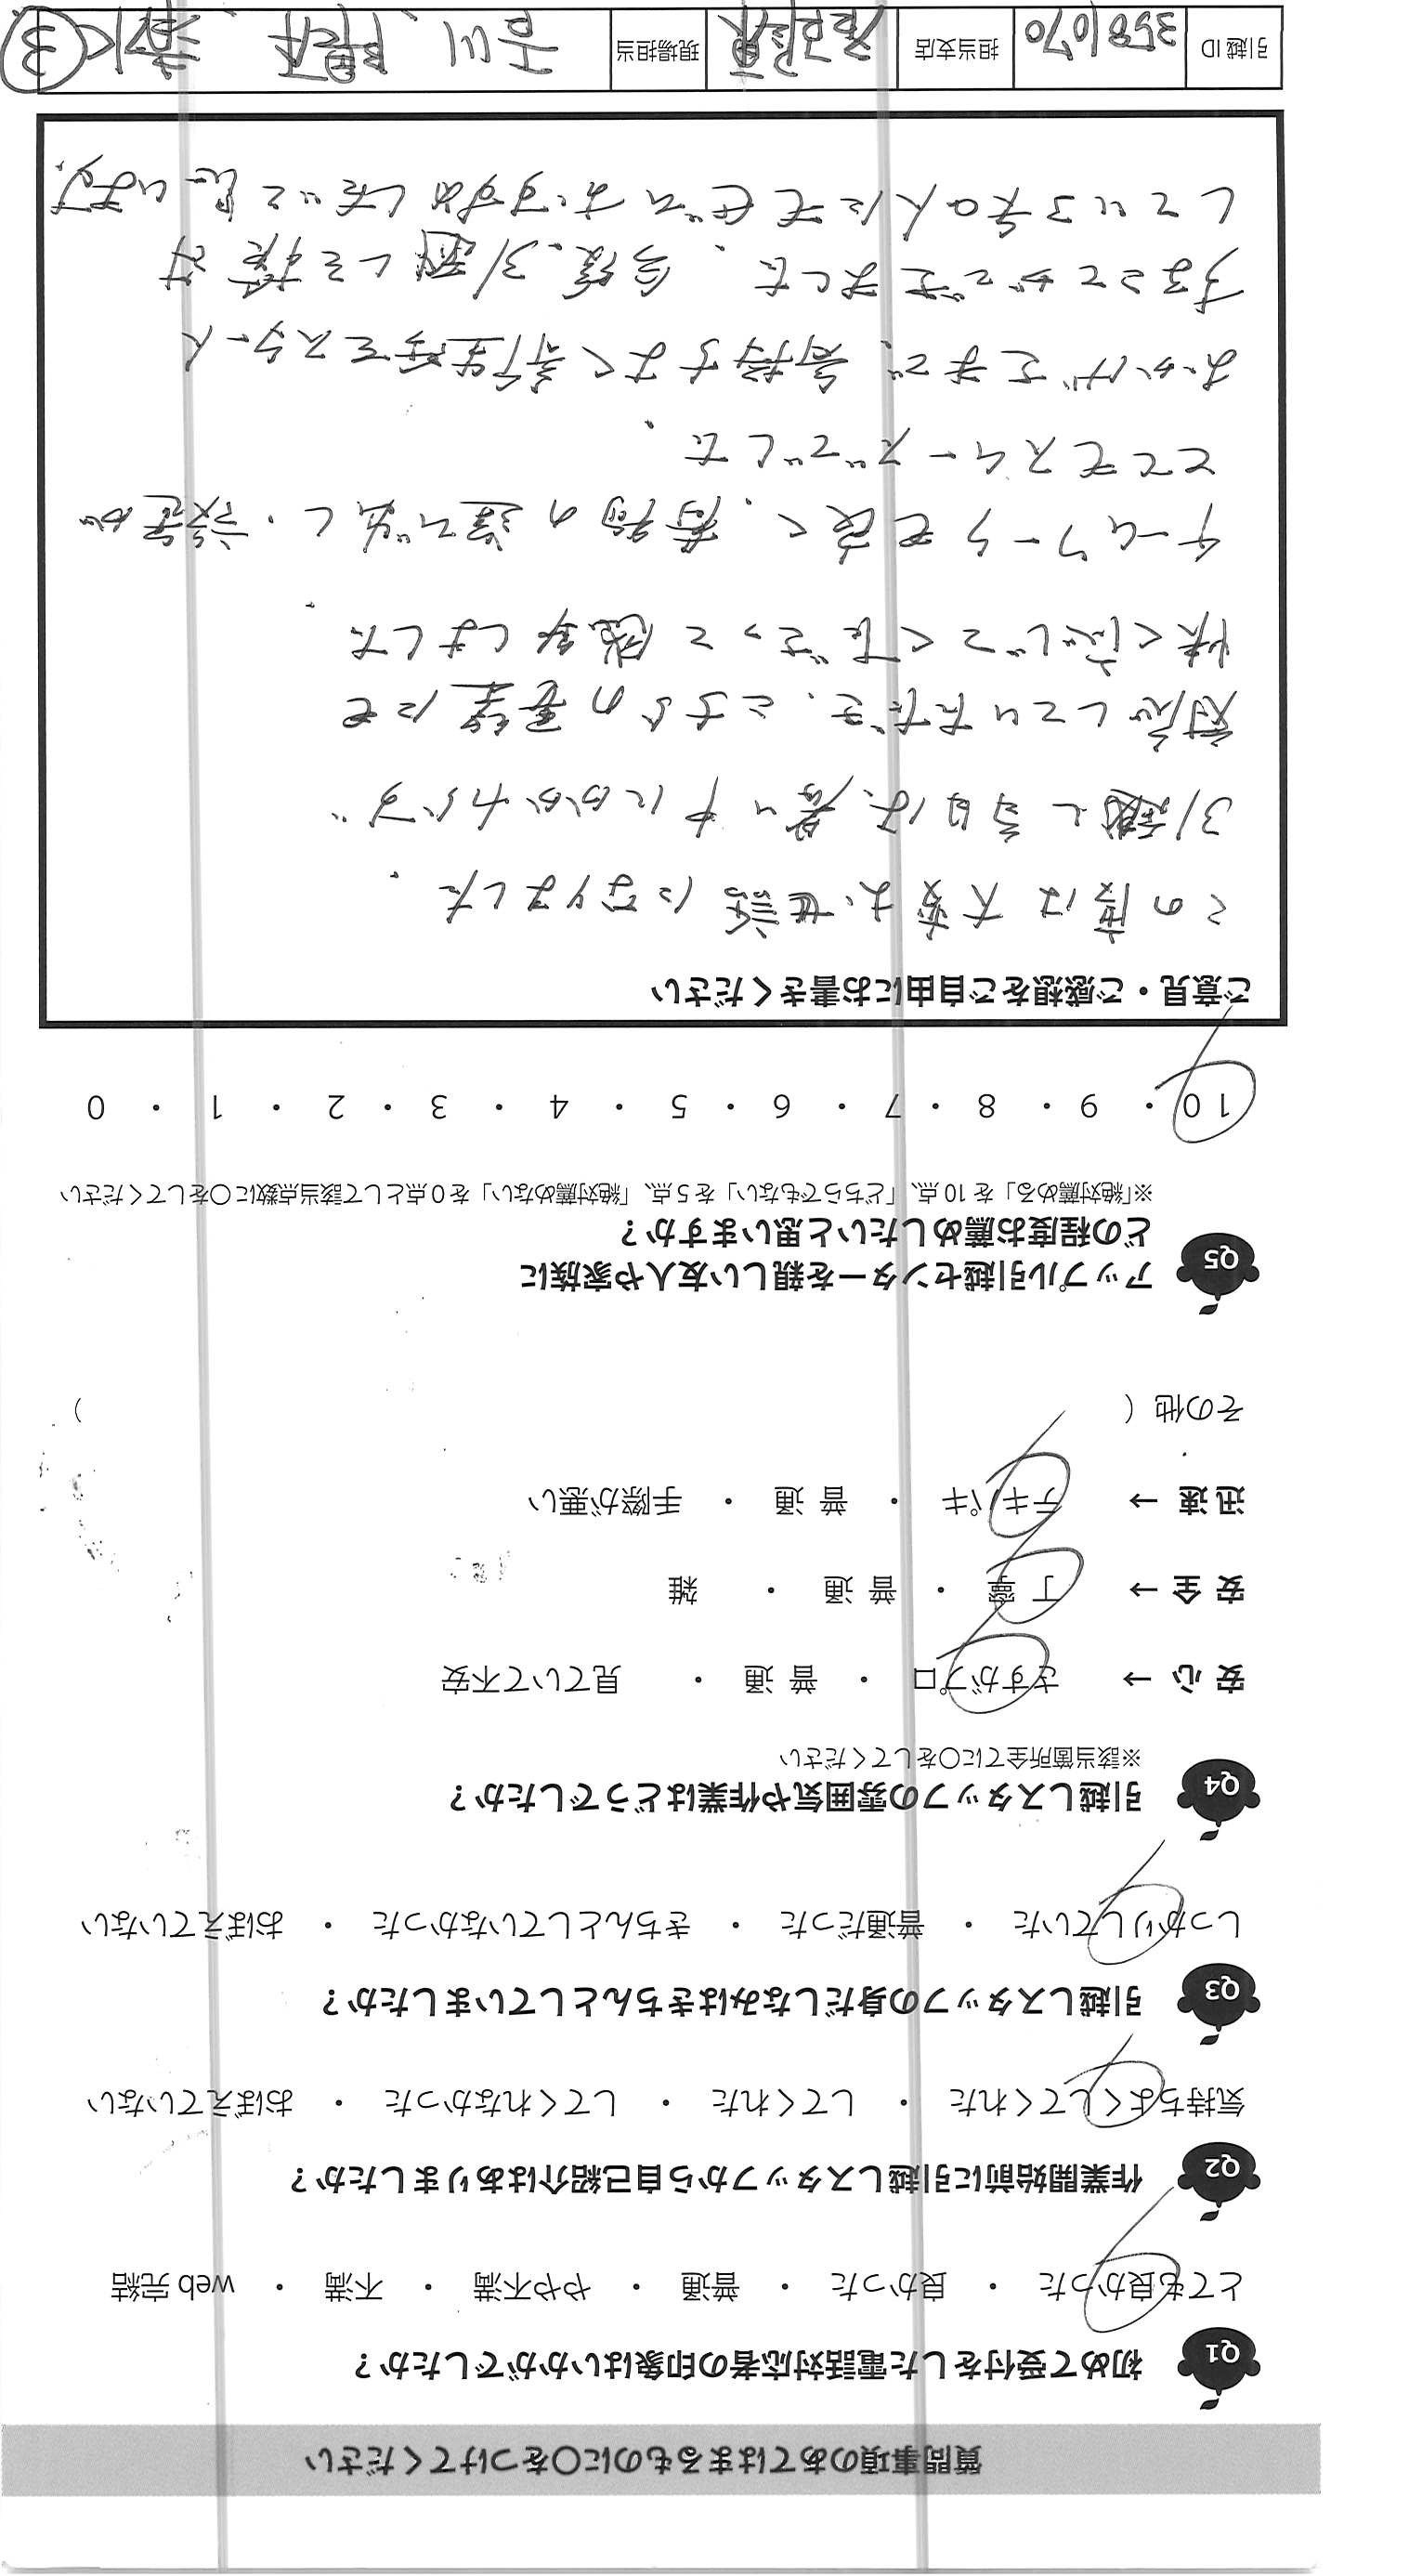 質問事項のあてはまるものに〇をつけてください
Q1 初めて受付をした電話対応者の印象はいかがでしたか？
とても良かった ・ 良かった ・ 普通 ・ やや不満 ・ 不満 ・ web 完結
Q2 作業開始前に引越しスタッフから自己紹介はありましたか？
気持ちよくしてくれた ・ してくれた ・ してくれなかった ・ おぼえていない
Q3 引越しスタッフの身だしなみはきちんとしていましたか？
しっかりしていた ・ 普通だった ・ きちんとしていなかった ・ おぼえていない
Q4 引越しスタッフの雰囲気や作業はどうでしたか？
※該当箇所全てに〇をしてください
安 心 → さすがプロ ・ 普 通 ・ 見ていて不安
安 全 → 丁 寧 ・ 普 通 ・ 雑
迅 速 → テキパキ ・ 普 通 ・ 手際が悪い
その他（ ）
Q5 アップル引越センターを親しい友人や家族に
どの程度お薦めしたいと思いますか？
※「絶対薦める」を 10 点、「どちらでもない」を 5 点、「絶対薦めない」を 0 点として該当点数に〇をしてください
10 ・ 9 ・ 8 ・ 7 ・ 6 ・ 5 ・ 4 ・ 3 ・ 2 ・ 1 ・ 0
ご意見・ご感想をご自由にお書きください
この度は大変お世話になりました。
引越し当日は、暑い中にもかかわらず
対応していただき、こちらの要望にも
快く応じてくださって感動しました。
チームワークも良く、荷物の運び出し・設置が
とてもスムーズでした。
おかげさまで、気持ちよく新生活をスタート
することができました。今後、引越しを検討
している友人にもぜひおすすめしたいと思います。
引越 ID 3581070 担当支店 現場担当 吉川 ③